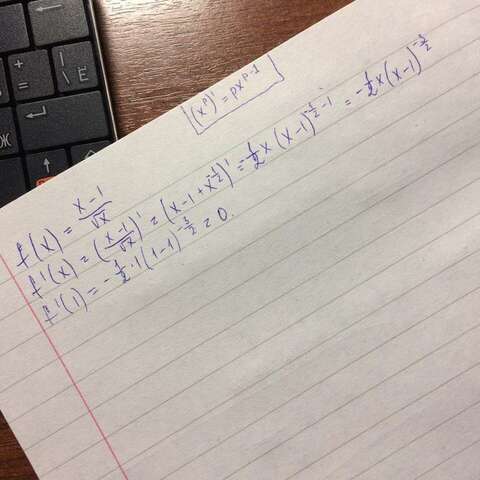 (x^p)' = px^{p-1}
f(x) = \frac{x-1}{\sqrt{x}}
f'(x) = (\frac{x-1}{\sqrt{x}})' = (x-1+x^{-\frac{1}{2}})' = -\frac{1}{2}x(x-1)^{-\frac{1}{2}-1} = -\frac{1}{2}x(x-1)^{-\frac{3}{2}}
f'(1) = -\frac{1}{2}·1(1-1)^{-\frac{3}{2}} = 0.